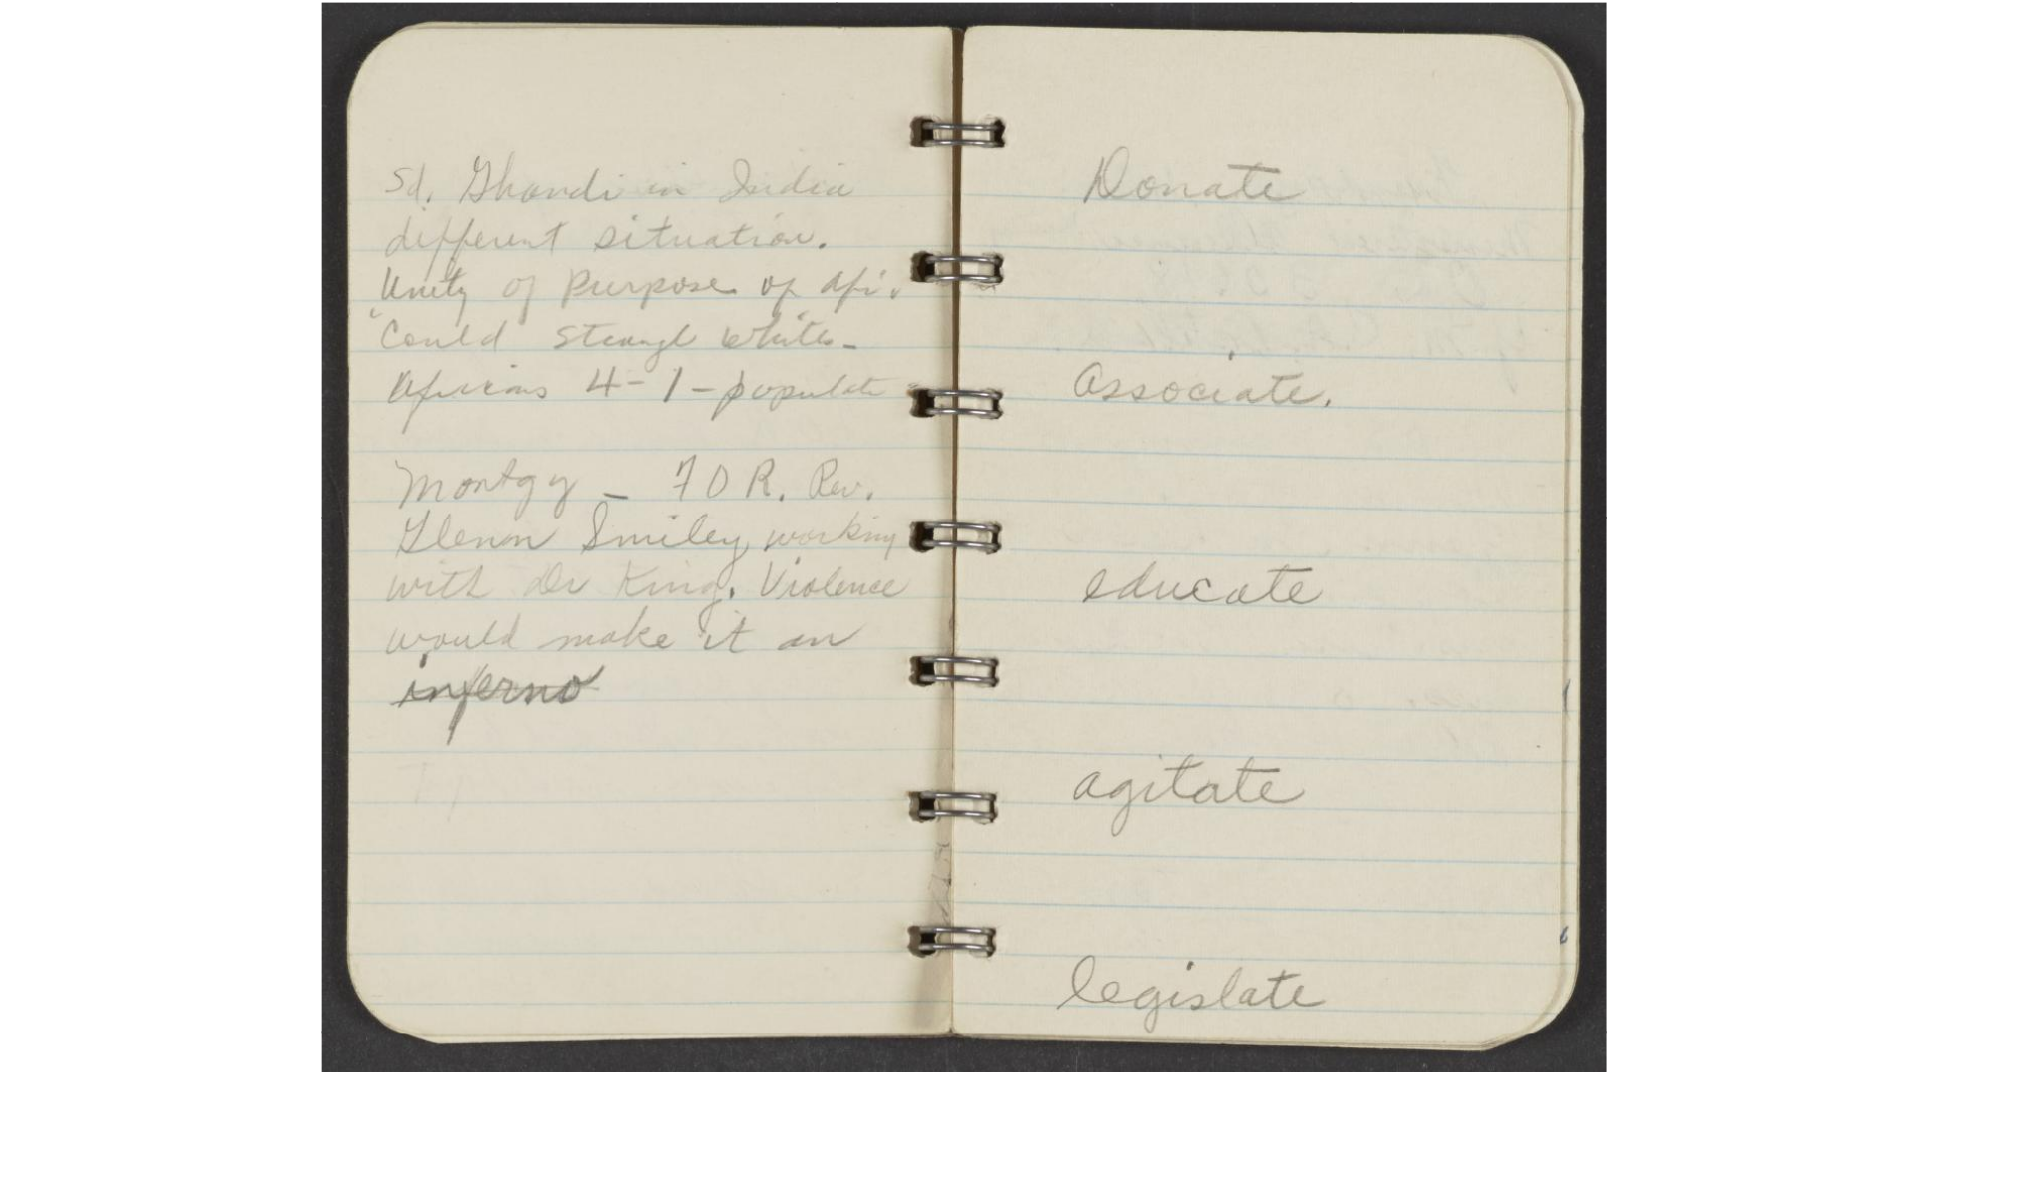 Sd. Ghandi in India
different situation.
Unity of Purpose of Afri.
Could strangl whites -
Africans 4-1 - populate
Montgy - FOR. Rev.
Glenn Smiley working
with Dr King. Violence
would make it an
inferno
Donate
Associate.
educate
agitate
legislate